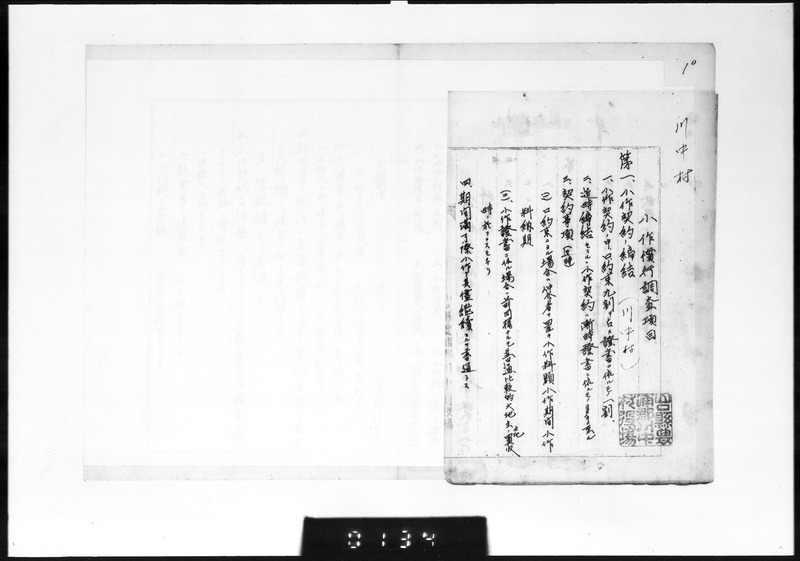 10
川中村
小作慣行調査項目
(川中村)
第一、小作契約ノ締結
一、小作契約ノ中、口約束九割ニシテ證書ニ依ルモノ一割、
二、近時締結セラルヽ小作契約ハ漸時證書ニ依ルモノ
三、契約事項
(一)口約束ニヨル場合ハ 小作料額小作期間小作
料納期
(二)、小作證書ニ依ル場合ハ前同様ナルモ普通比較的大地主
時ニ於テ
四、期間満了ノ際小作ハ其儘継續スルヲ普通トス
山口縣豊
浦郡川中
村役場
0134